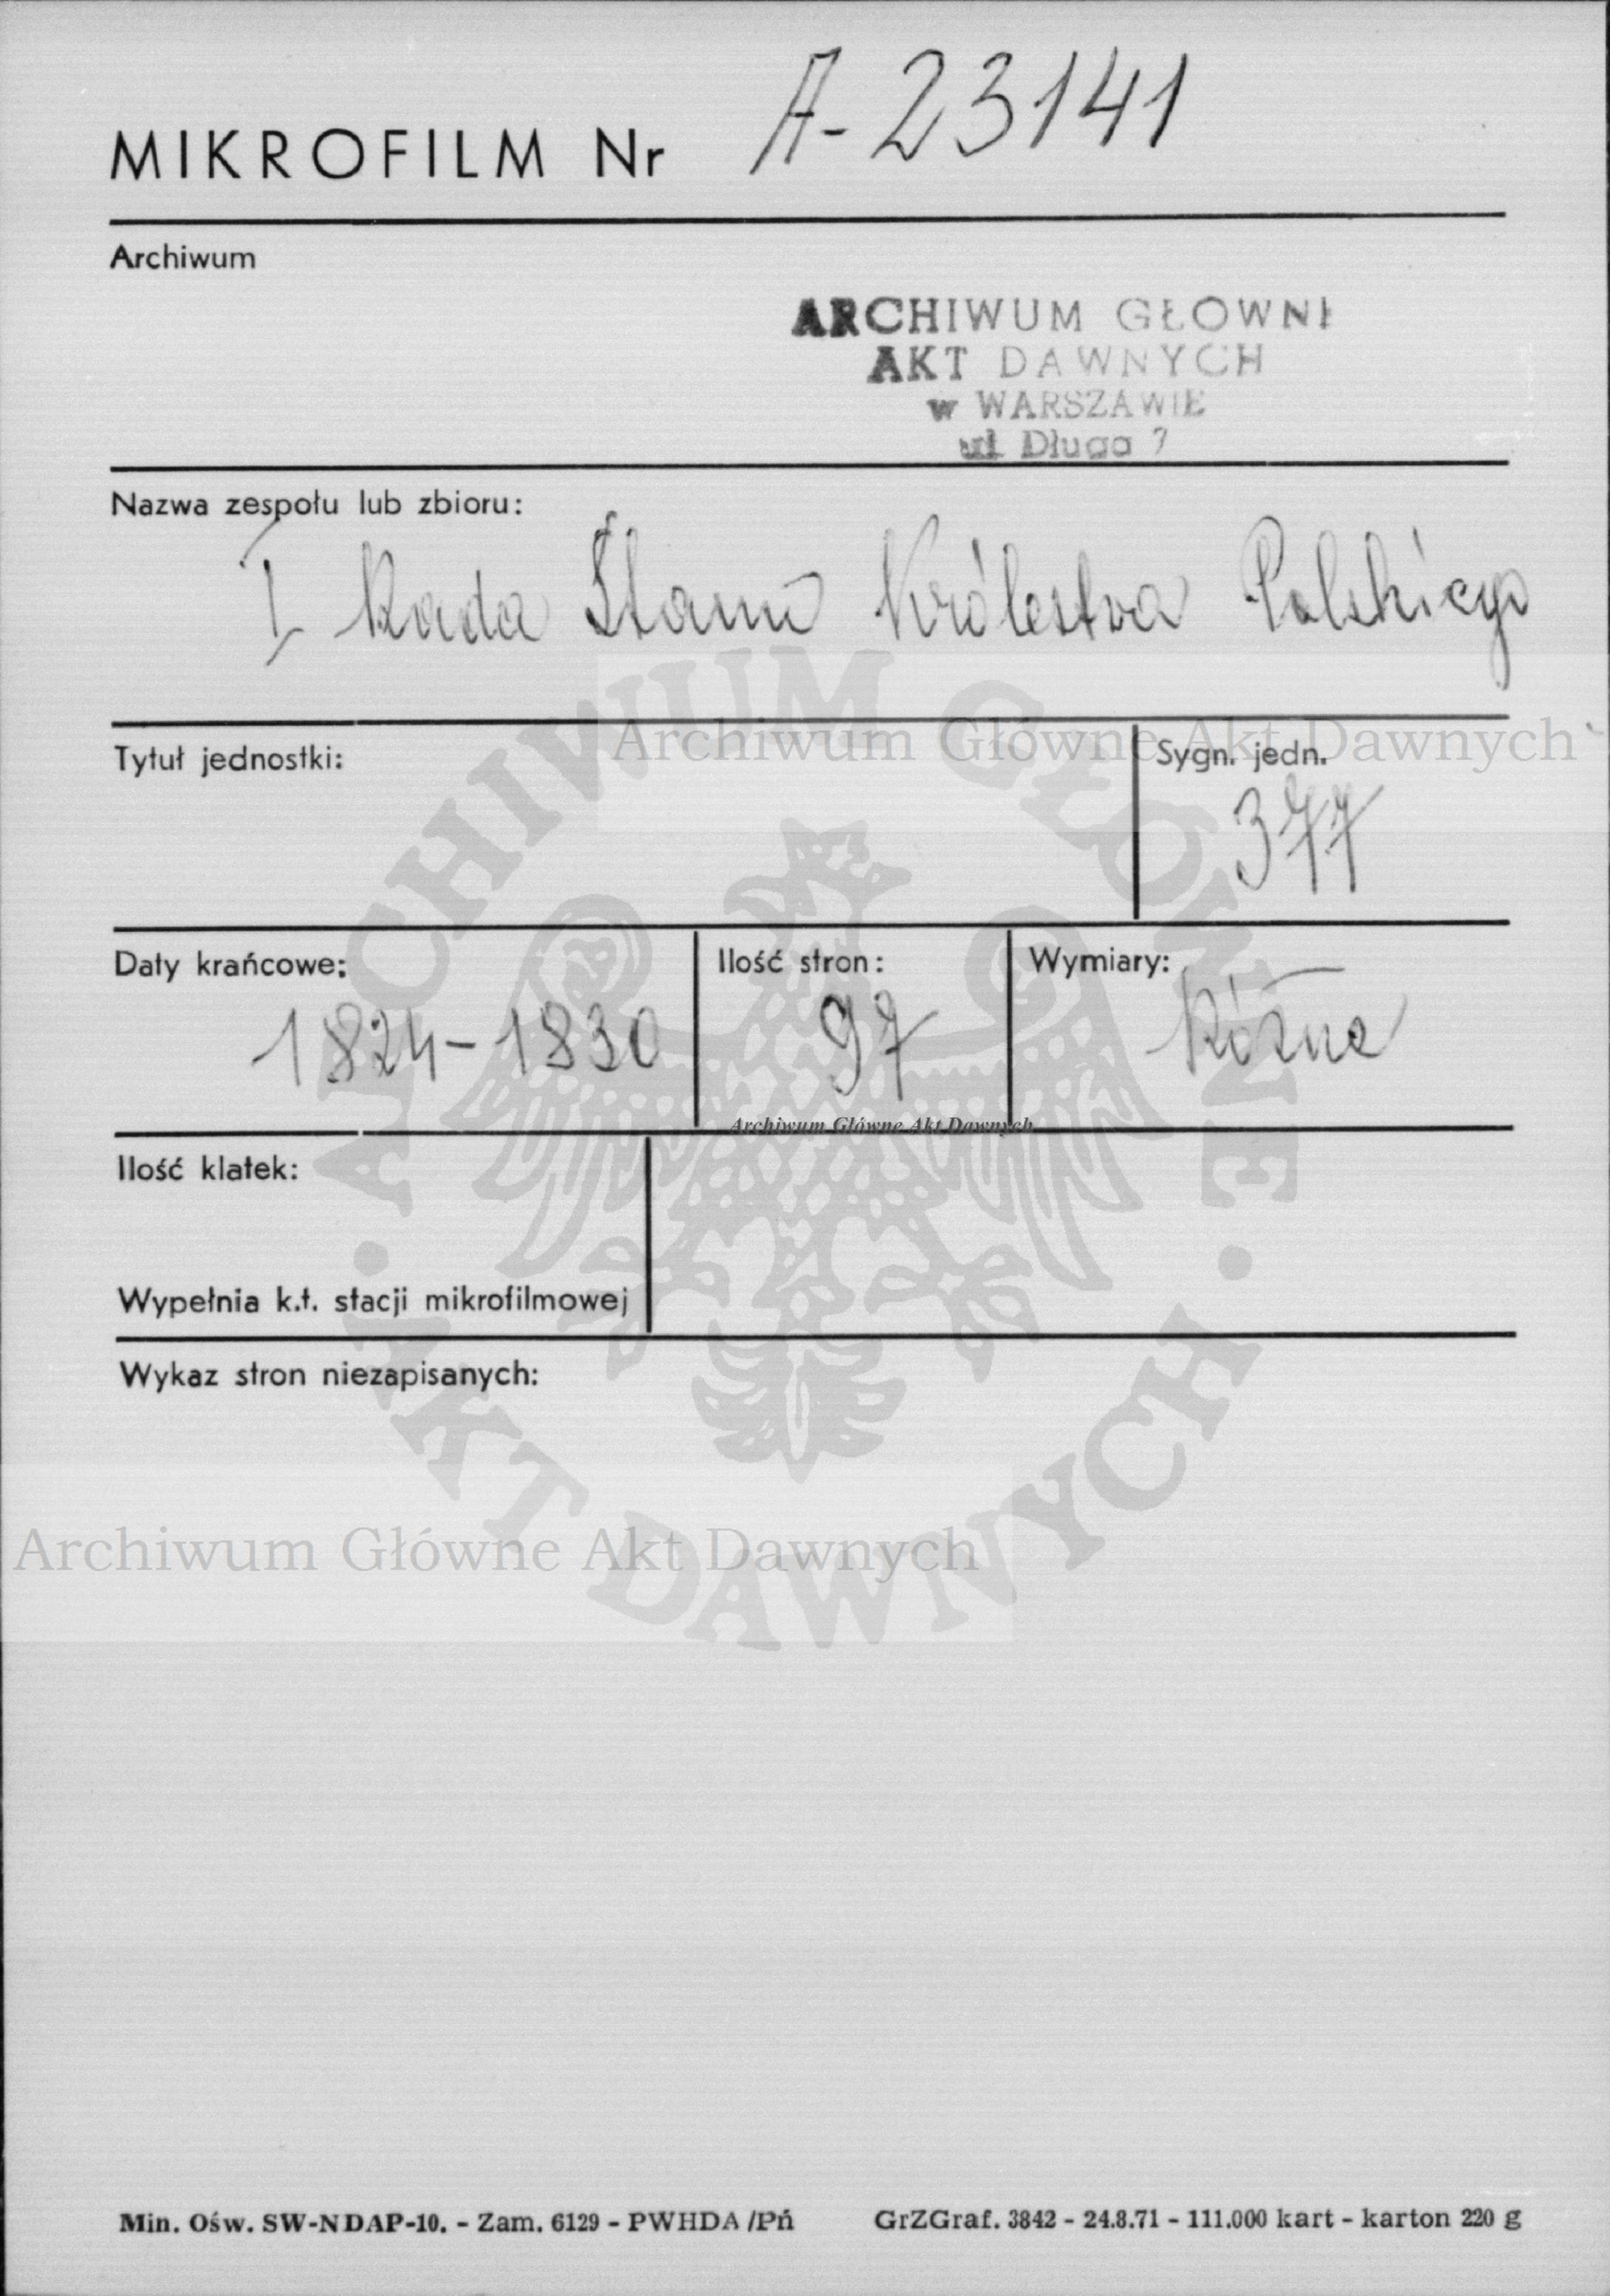 MIKROFILM Nr A-23141
Archiwum
ARCHIWUM GŁOWNE
AKT DAWNYCH
w WARSZAWIE
ul Długa 7
Nazwa zespołu lub zbioru:
I Rada Stanu Królestwa Polskiego
Archiwum Główne Akt Dawnych
Tytuł jednostki:
Sygn. jedn.
377
Daty krańcowe:
1824-1830
Ilość stron:
97
Wymiary:
Różne
Archiwum Główne Akt Dawnych
Ilość klatek:
Wypełnia k.t. stacji mikrofilmowej
Wykaz stron niezapisanych:
Archiwum Główne Akt Dawnych
ARCHIWUM GŁÓWNE · AKT DAWNYCH ·
Min. Ośw. SW-NDAP-10. - Zam. 6129 - PWHDA/Pń GrZGraf. 3842 - 24.8.71 - 111.000 kart - karton 220 g